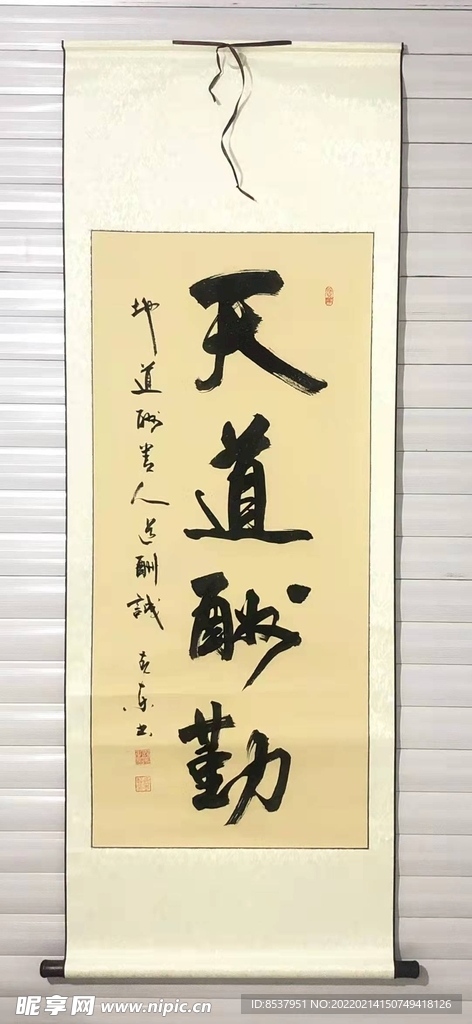 天道酬勤
地道酬善人道酬誠
书
昵享网 www.nipic.cn
ID:8537951 NO:20220214150749418126